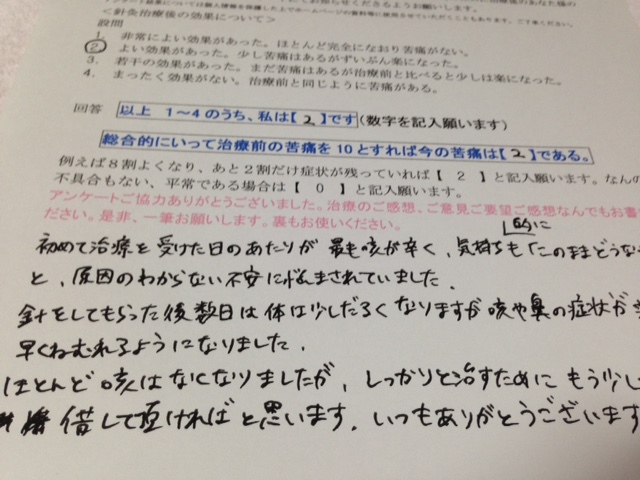 アンケート結果については個人情報を保護した上でホームページの資料等に使用させていただくこともあります。ご了承ください。
＜針灸治療後の効果について＞
設問
1. 非常によい効果があった。ほとんど完全になおり苦痛がない。
2. よい効果があった。少し苦痛はあるがずいぶん楽になった。
3. 若干の効果があった。まだ苦痛はあるが治療前と比べると少しは楽になった。
4. まったく効果がない。治療前と同じように苦痛がある。
回答 以上 1～4のうち、私は【 2 】です(数字を記入願います)
総合的にいって治療前の苦痛を10とすれば今の苦痛は【 2 】である。
例えば8割よくなり、あと2割だけ症状が残っていれば【 2 】と記入願います。なんの
不具合もない、平常である場合は【 0 】と記入願います。
アンケートご協力ありがとうございました。治療のご感想、ご意見ご要望ご感想なんでもお書
ださい。是非、一筆お願いします。裏もお使いください。
的に
初めて治療を受けた日のあたりが最も咳が辛く、気持ちも「このままどうな
と、原因のわからない不安に悩まされていました。
針をしてもらった後数日は体は少しだるくなりますが咳や鼻の症状が
早くねむれるようになりました。
ほとんど咳はなくなりましたが、しっかりと治すためにもう少し
借して頂ければと思います。いつもありがとうございます